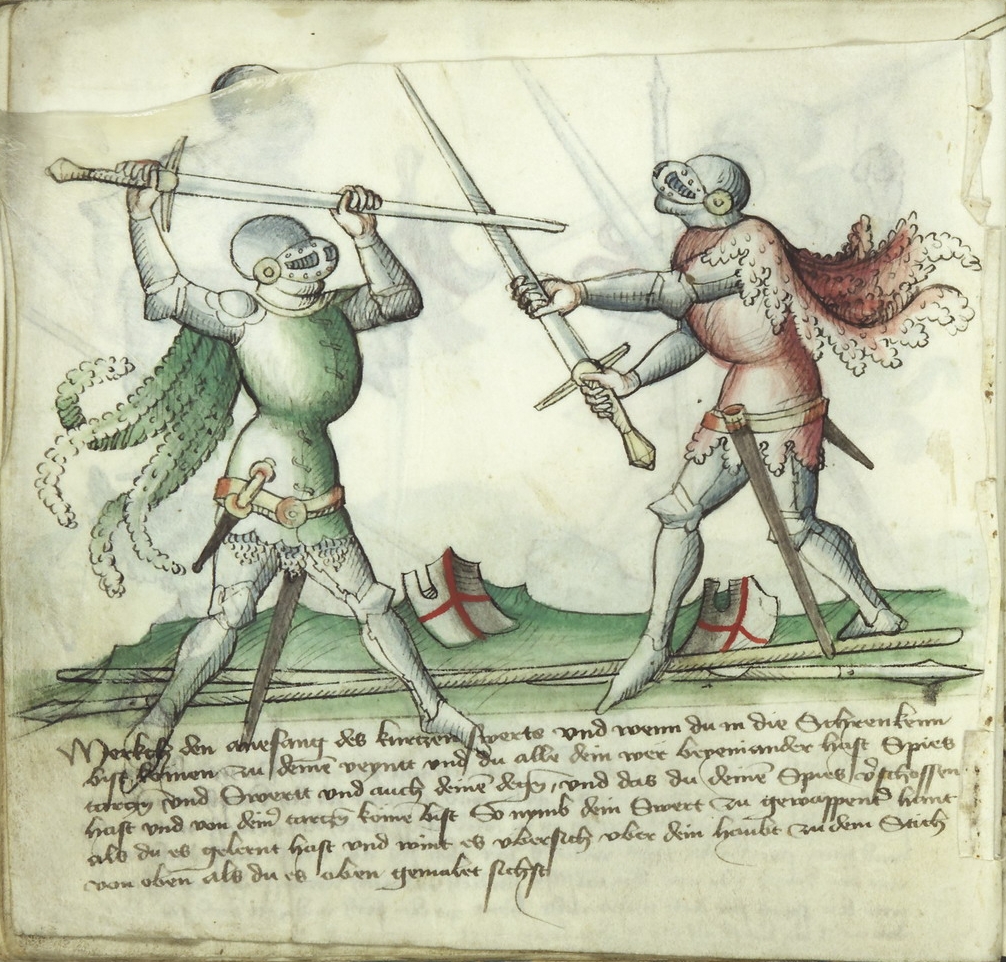 Merckch den anefang des kurczen swerts vnd wenn du in die Schrenkenn
bist komen zu deinē veyntt vnd du alle dein wer beyeniander hast Spies
tarczn vnd Swertt vnd auch deinē degn, vnd das du deinē Spies v̓schossen
hast vnd von dein̄ tarczn komē bist So nymb dein Swert zu gewappent̓ hant
als du es gelernt hast vnd wint es vbersich vber dein haubt zu dem Stich
von oben als du es oben gemalet sichst